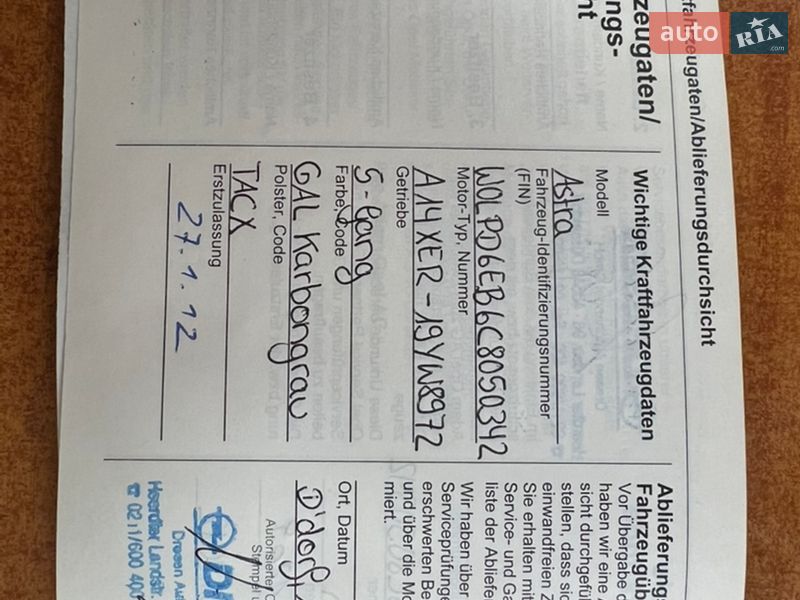 auto RIA.com
fahrzeugaten/Ablieferungsdurchsicht
zeugaten/
ngs-
ht
Wichtige Kraftfahrzeugdaten
Modell
Astra
Fahrzeug-Identifizierungsnummer
(FIN)
W0LPD6EB6C8050342
Motor-Typ, Nummer
A14XER-19YW8972
Getriebe
5-Gang
Farbe, Code
GAL Karbongrau
Polster, Code
TACX
Erstzulassung
27.1.12
Ablieferung
Fahrzeugüb
Vor Übergabe d
haben wir eine A
sicht durchgefüh
stellen, dass sic
einwandfreien Z
Sie erhalten mit
Service- und Ga
liste der Abliefe
Wir haben über
Serviceprüfunge
erschwerten Be
und über die Mo
miert.
Ort, Datum
D'dorf
Autorisierter O
Stempel u
Dresen Aut
Heerdter Landstr.
☎ 02 11/600 400